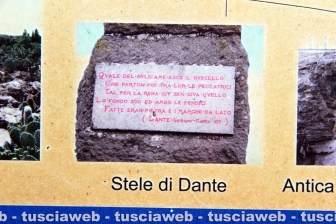 QUALE DEL BULICAME ESCE IL RUSCELLO
CHE PARTON POI TRA LOR LE PECCATRICI
TAL PER LA RENA GIÙ SEN GIVA QUELLO
LO FONDO SUO ED AMBO LE PENDICI
FATTE ERAN PIETRA E I MARGINI DA LATO
(DANTE
Stele di Dante
Antica
tusciaweb - tusciaweb - tusciaweb - tusciaweb -